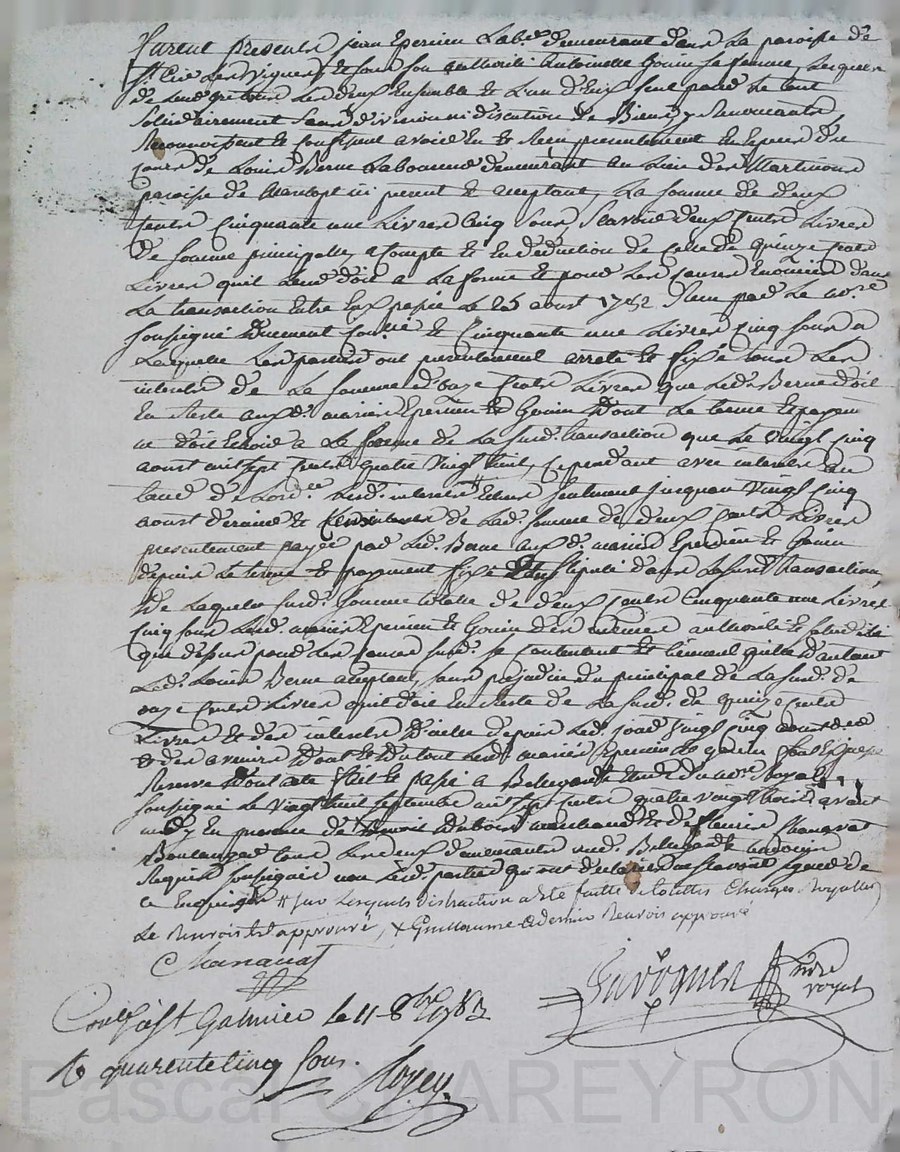 Furent presents jean Epercieu Lab.r demeurant dans La paroisse de
St. Les Vignes et sous son authorité Antoinette Gouin sa femme, Lesquels
de Leur gré tous Les deux Ensemble et L'un d'Eux seul pour Le tout
solidairement sans division ni discution de Biens y Renoncants
Reconnoissent et confessent avoir Eu et Reçu presentement En Especes du
cours de Louis Berne Laboureur demeurant au Lieu des
paroisse de ici present et acceptant, La somme de deux
cents Cinquante une Livres Cinq sous, sçavoir deux Cents Livres
de somme principalle, a Compte et En deduction de Celle de quinze Cents
Livres quil Leur doit a La forme et pour Les causes Enoncées dans
La transaction Entre Eux passée Le 25 aoust 17 Reçue par Le no.re
soussigné duement Con.lée et Cinquante une Livres Cinq sous a
Laquelle Les parties ont presentement arreté et fixé tous Les
interets de La somme d'onze Cents Livres que Led. Berne doit
En Reste auxd. mariés Epercieu et Gouin dont Le terme Et payem
ne doit Echoir a La forme de La susd. transaction que Le Vingt Cinq
aoust mil sept Cents quatre Vingt huit, Cependant avec interets au
taux de L'ord.ce Lesd. interets # Echus seulement jusquau Vingt Cinq
aoust dernier et Les interets de Lad. somme de deux Cents Livres
presentement payée par Led. Berne auxd. mariés Epercieu et Gouin
depuis Le terme et payement fixé Stipulé dans Lasusd. transaction,
De Laquelle susd. somme totalle de deux Cents Cinquante une Livres
Cinq sous Lesd. mariés Epercieu et Gouin des memes authorité et solidité
que dessus pour Les causes susd. se contentent et tiennent quitte d'autant
Led. Louis Berne acceptant, sans prejudice du principal de La susd. de
onze Cents Livres quil doit En Reste de La susd. de quinze Cents
Livres et des interets d'icelle depuis Led. jour Vingt Cinq aoust der
et des avenirs dont et du tout Lesd. mariés Epercieu et Gouin font Expresse
Reserve Dont acte fait et passé a Bellegarde Etude du no.re Royal
soussigné Le Vingt huit septembre mil sept Cents quatre Vingt trois avant
midy En presence de Benoit Dubois marchand et de fleurie Chanavat
Boulanger tous Les deux demeurants aud. Bellegarde temoins
Requis soussignés non Lesd. parties qui ont declaré ne sçavoir signer de
ce Enquis # sur Lesquels distraction a eté faitte de touttes Charges Royalles
Le Renvois est approuvé, x Guillaume Cedernier Renvois approuvé
Chanavat
no.re
royal
Con.lé a St Galmier le 11 8.bre 1783
R quarente cinq sous.
Pascal CHAREYRON